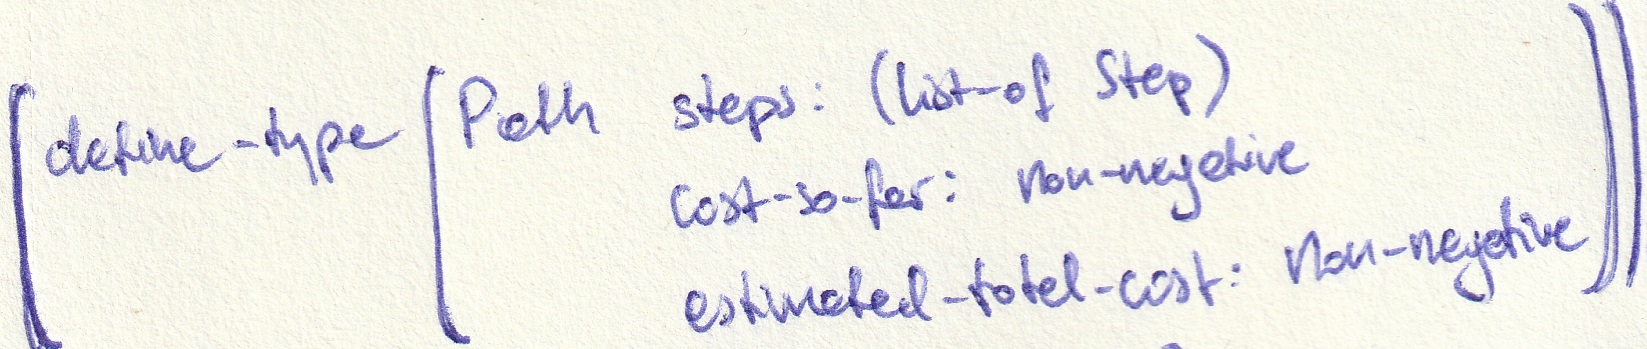 (define-type (Path steps: (list-of Step)
cost-so-far: non-negative
estimated-total-cost: non-negative))